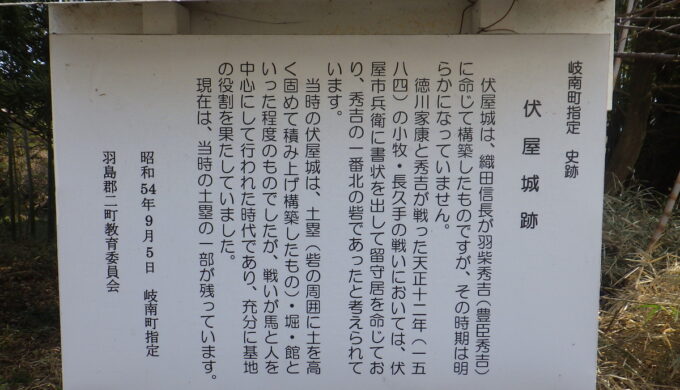 岐南町指定 史跡
伏屋城跡
伏屋城は、織田信長が羽柴秀吉（豊臣秀吉）
に命じて構築したものですが、その時期は明
らかになっていません。
徳川家康と秀吉が戦った天正十二年（一五
八四）の小牧・長久手の戦いにおいては、伏
屋市兵衛に書状を出して留守居を命じてお
り、秀吉の一番北の砦であったと考えられて
います。
当時の伏屋城は、土塁（砦の周囲に土を高
く固めて積み上げ構築したもの）・堀・館と
いった程度のものでしたが、戦いが馬と人を
中心にして行われた時代であり、充分に基地
の役割を果たしていました。
現在は、当時の土塁の一部が残っています。
昭和54年9月5日 岐南町指定
羽島郡二町教育委員会